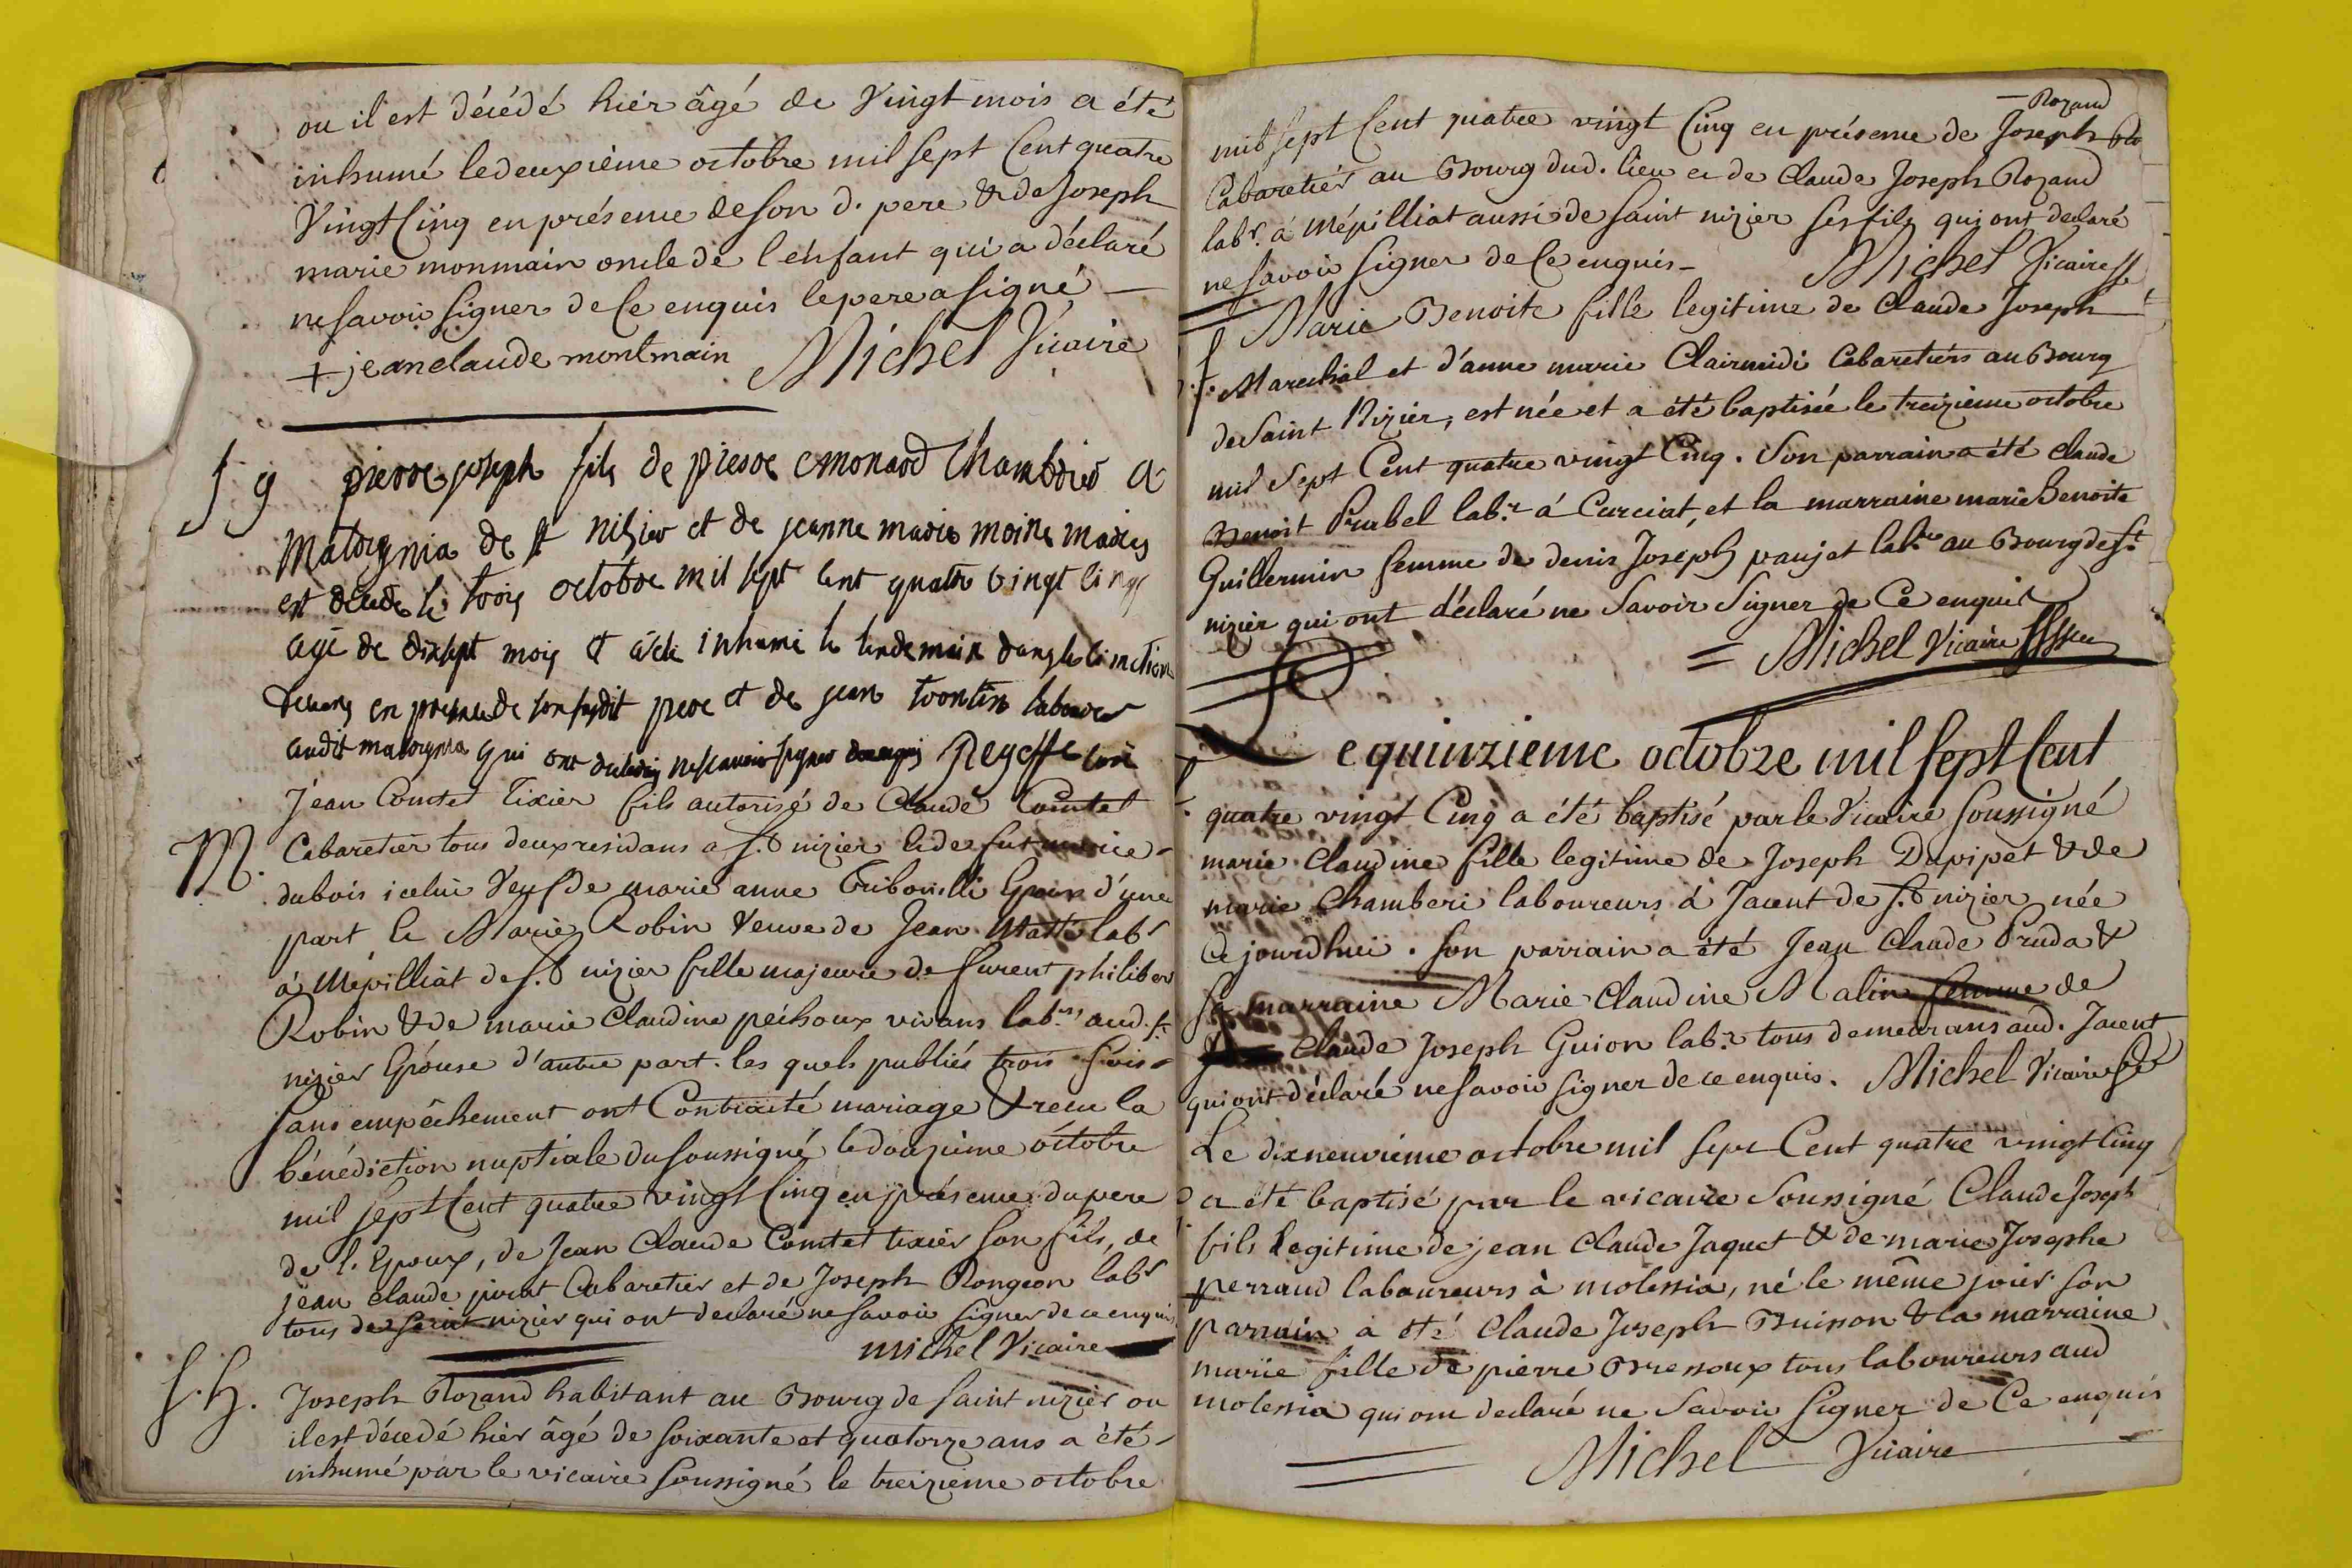 ou il est décédé hiér âgé de Vingt mois a été
inhumé le deuxième octobre mil sept Cent quatre
Vingt Cinq en présence de son d. pere & de Joseph
marie monmain oncle de l'enfant qui a déclaré
ne savoir signer de Ce enquis le pere a signé —
+ jean claude montmain Michel Vicaire
pierre joseph fils de pierre monard Chambrier a
Matorgnia de st nisier et de jeanne marie moine mariés
est décédé le trois octobre mil sept cent quatre vingt cinq
agé de dix sept mois et a été inhumé le lendemain dans le cimetiere
en presence de son susdit pere et de jean trontin laboureur
audit matorgnia qui ont declaré ne scavoir signer enquis Reyesse curé
Jean Comtet Tixier fils autorisé de Claude Comtet
M. Cabaretier tous deux residans a s.t nizier & de fut
dubois icelui Veuf de marie anne Tribouilli Epoux d'une
part Et Marie Robin Veuve de Jean Matté labr
à Mépilliat de s.t nizier fille majeure de furent philibert
Robin & de marie Claudine péchoux vivans lab.rs aud. st
nizier Epouse d'autre part. les quels publiés trois fois
sans empêchement ont Contracté mariage & recu la
bénédiction nuptiale du soussigné le douzième octobre
mil sept Cent quatre vingt Cinq en présence du pere
de l. Epoux, de Jean Claude Comtet tixier son fils, de
jean claude Cabaretier et de Joseph Rongeon labr
tous de saint nizier qui ont declaré ne savoir signer de ce enquis
michel Vicaire
S. h. Joseph Rozand habitant au Bourg de saint nizier ou
il est décédé hiér âgé de soixante et quatorze ans a été
inhumé par le vicaire soussigné le treizieme octobre
— Rozand
mil sept Cent quatre vingt Cinq en présence de Joseph
Cabaretiér au Bourg dud. lieu et de Claude Joseph Rozand
labr. à Mépilliat aussi de saint nizier ses fils qui ont declaré
ne savoir signer de Ce enquis — Michel Vicaire
Marie Benoite fille legitime de Claude Joseph
Marechal et d'anne marie Clairmidi Cabaretiérs au Bourg
de Saint Nizier, est née et a été baptisée le treizieme octobre
mil Sept Cent quatre vingt Cinq. Son parrain a été Claude
Benoit Prabel lab.r à Curciat, et la marraine marie Benoite
Guillermin femme de denis Joseph paujet lab.r au Bourg de st
nizier qui ont déclaré ne Savoir Signer de Ce enquis
= Michel Vicaire
Le quinzieme octobre mil sept Cent
quatre vingt Cinq a été baptisé par le Vicaire soussigné
marie Claudine fille legitime de Joseph Dupipet & de
marie Chamberi laboureurs à Jacent de s.t nizier née
Ce jourd'hui. son parrain a été Jean Claude Pruda &
sa marraine Marie Claudine Malin femme de
Claude Joseph Guion lab.r tous demeurans aud. Jacent
qui ont déclaré ne savoir signer de ce enquis. Michel Vicaire
Le dixneuvieme octobre mil sept Cent quatre vingt Cinq
a été baptisé par le vicaire Soussigné Claude Joseph
fils Legitime de jean Claude Jaquet & de marie Josephe
perraud laboureurs à molessia, né le même jour son
parrain a été Claude Joseph Buisson & la marraine
marie fille de pierre Bressoux tous laboureurs aud
molessia qui ont declaré ne Savoir Signer de Ce enquis
Michel Vicaire